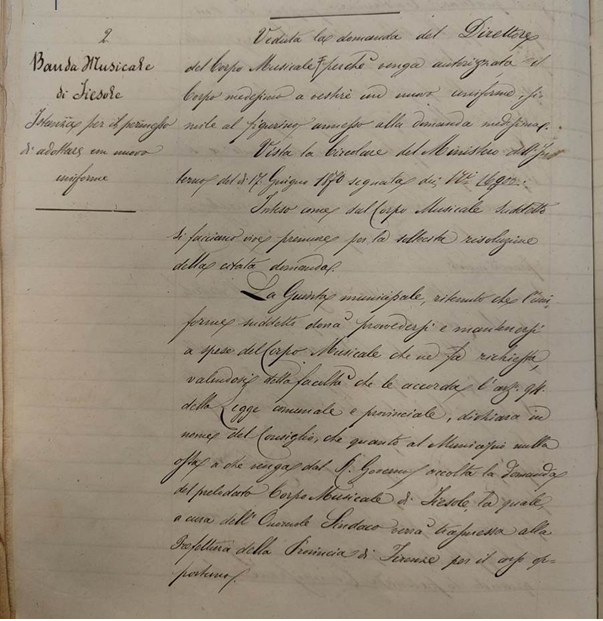 2
Banda Musicale
di Fiesole
Istanza per il permesso
di adottare un nuovo
uniforme
Veduta la domanda del Direttore
del Corpo Musicale perché venga autorizzato il
Corpo medesimo a vestire un nuovo uniforme si-
mile al figurino annesso alla domanda medesima.
Vista la Circolare del Ministero dell'In-
terno del dì 17 Giugno 1870 segnata di
Inteso come dal Corpo Musicale suddetto
si facciano vive premure per la sollecita risoluzione
della citata domanda.
La Giunta municipale, ritenuto che l'uni-
forme suddetto dovrà provvedersi e mantenersi
a spese del Corpo Musicale che ne fa richiesta,
valendosi della facoltà che le accorda l'art.
della Legge comunale e provinciale, dichiara in
nome del Consiglio, che quanto al Municipio nulla
osta a che venga dal R. Governo accolta la Domanda
del prelodato Corpo Musicale di Fiesole, la quale,
a cura dell'Onorevole Sindaco verrà trasmessa alla
Prefettura della Provincia di Firenze per il corso op-
portuno.